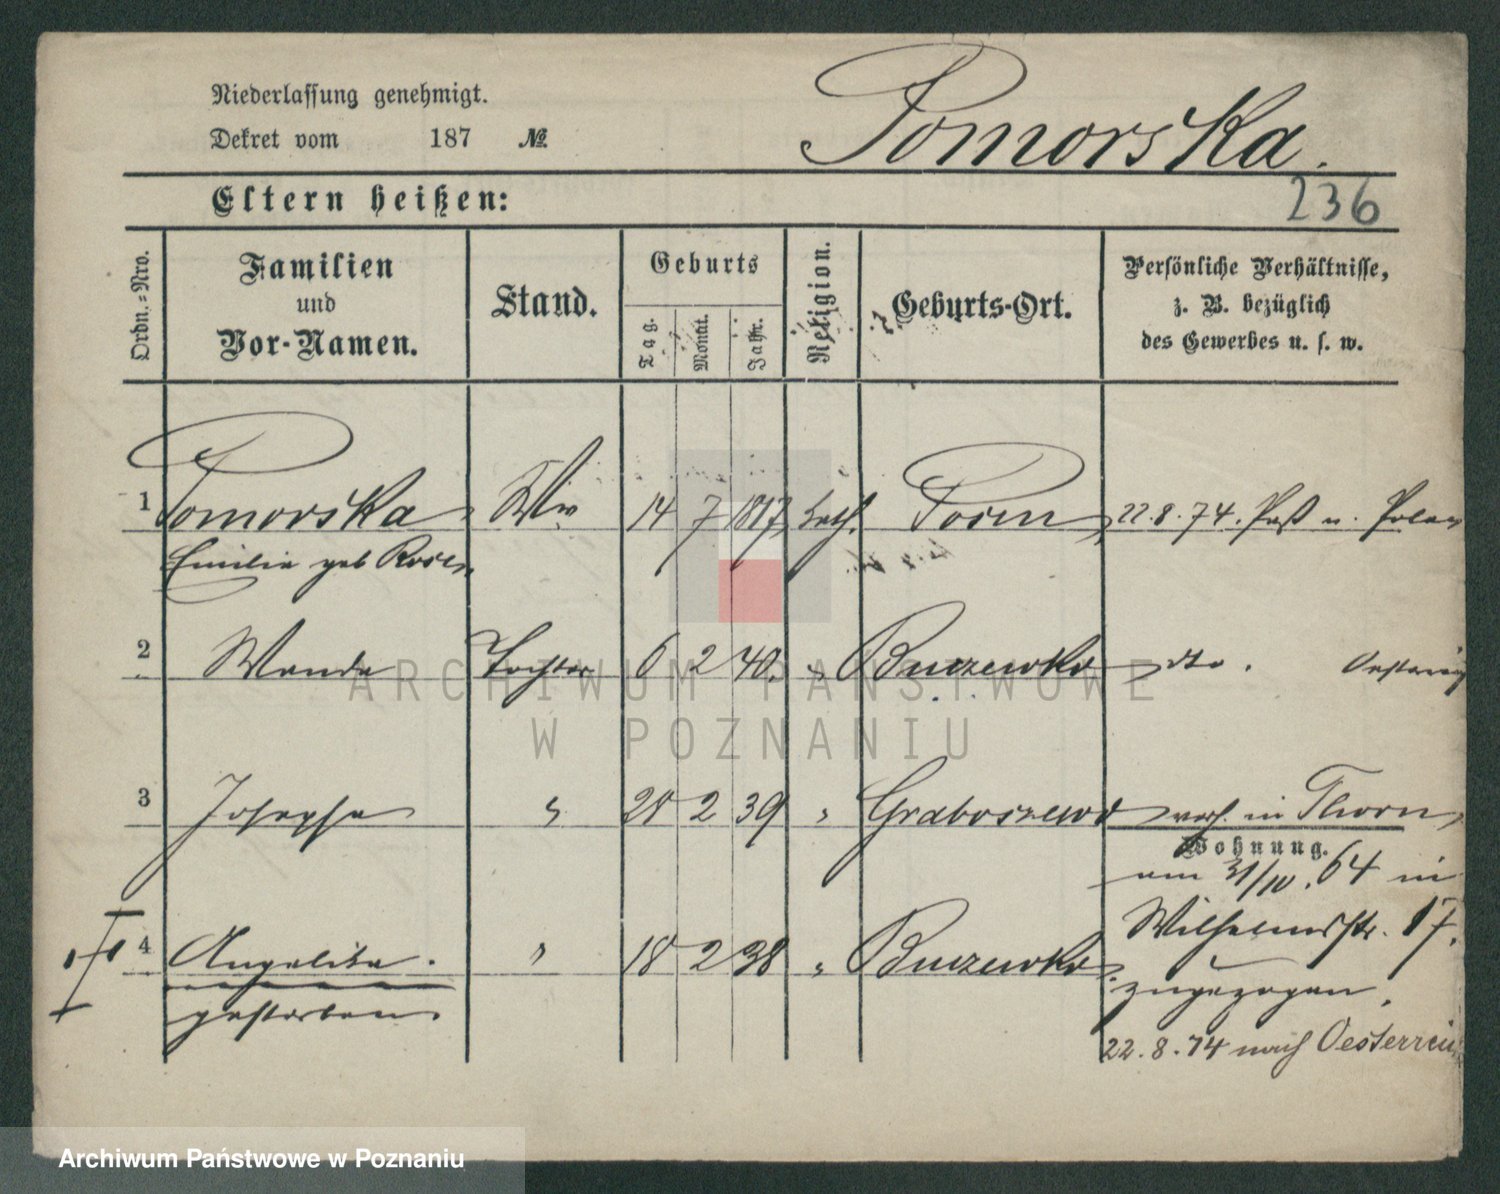 Niederlassung genehmigt.
Dekret vom 187 №
Pomorska.
Eltern heißen:
236
Ordn.=Nro.
Familien
und
Vor-Namen.
Stand.
Geburts
Tag.
Monat.
Jahr.
Religion.
Geburts-Ort.
Persönliche Verhältnisse,
z. B. bezüglich
des Gewerbes u. s. w.
1 Pomorska Ww 14 7 1817 kath. Posen 22.8.74. Paß n. Polen
Emilie geb Rose
2 Wanda Tochter 6 2 40. " dto.
3 Josepha " 20 2 39 " Graboszewo verh. in Thorn
Wohnung.
am 31/10. 64 in
4 Angelika. " 18 2 38 "
Wilhelmsstr. 17.
zugezogen.
gestorben.
22.8.74 nach Oesterreich
ARCHIWUM PAŃSTWOWE
W POZNANIU
Archiwum Państwowe w Poznaniu